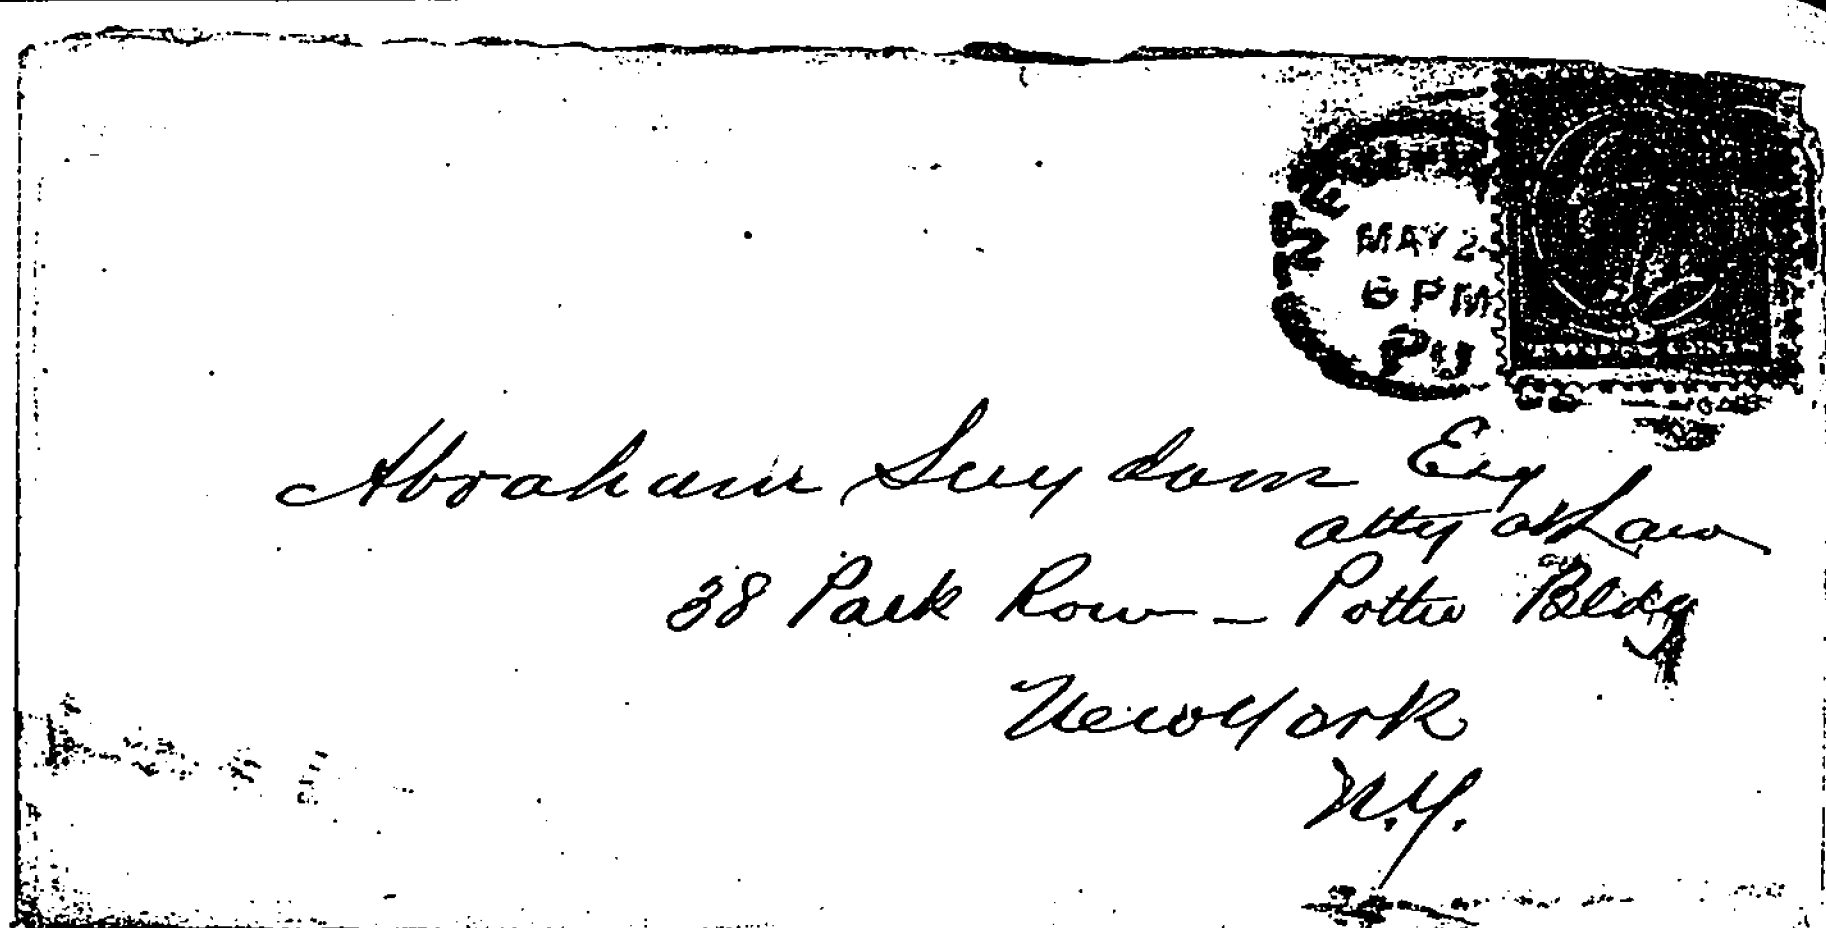 MAY 2
6 PM
TWO CENTS
Abraham Suydam Esq
atty at Law
38 Park Row - Potter Bldg
New York
N.Y.